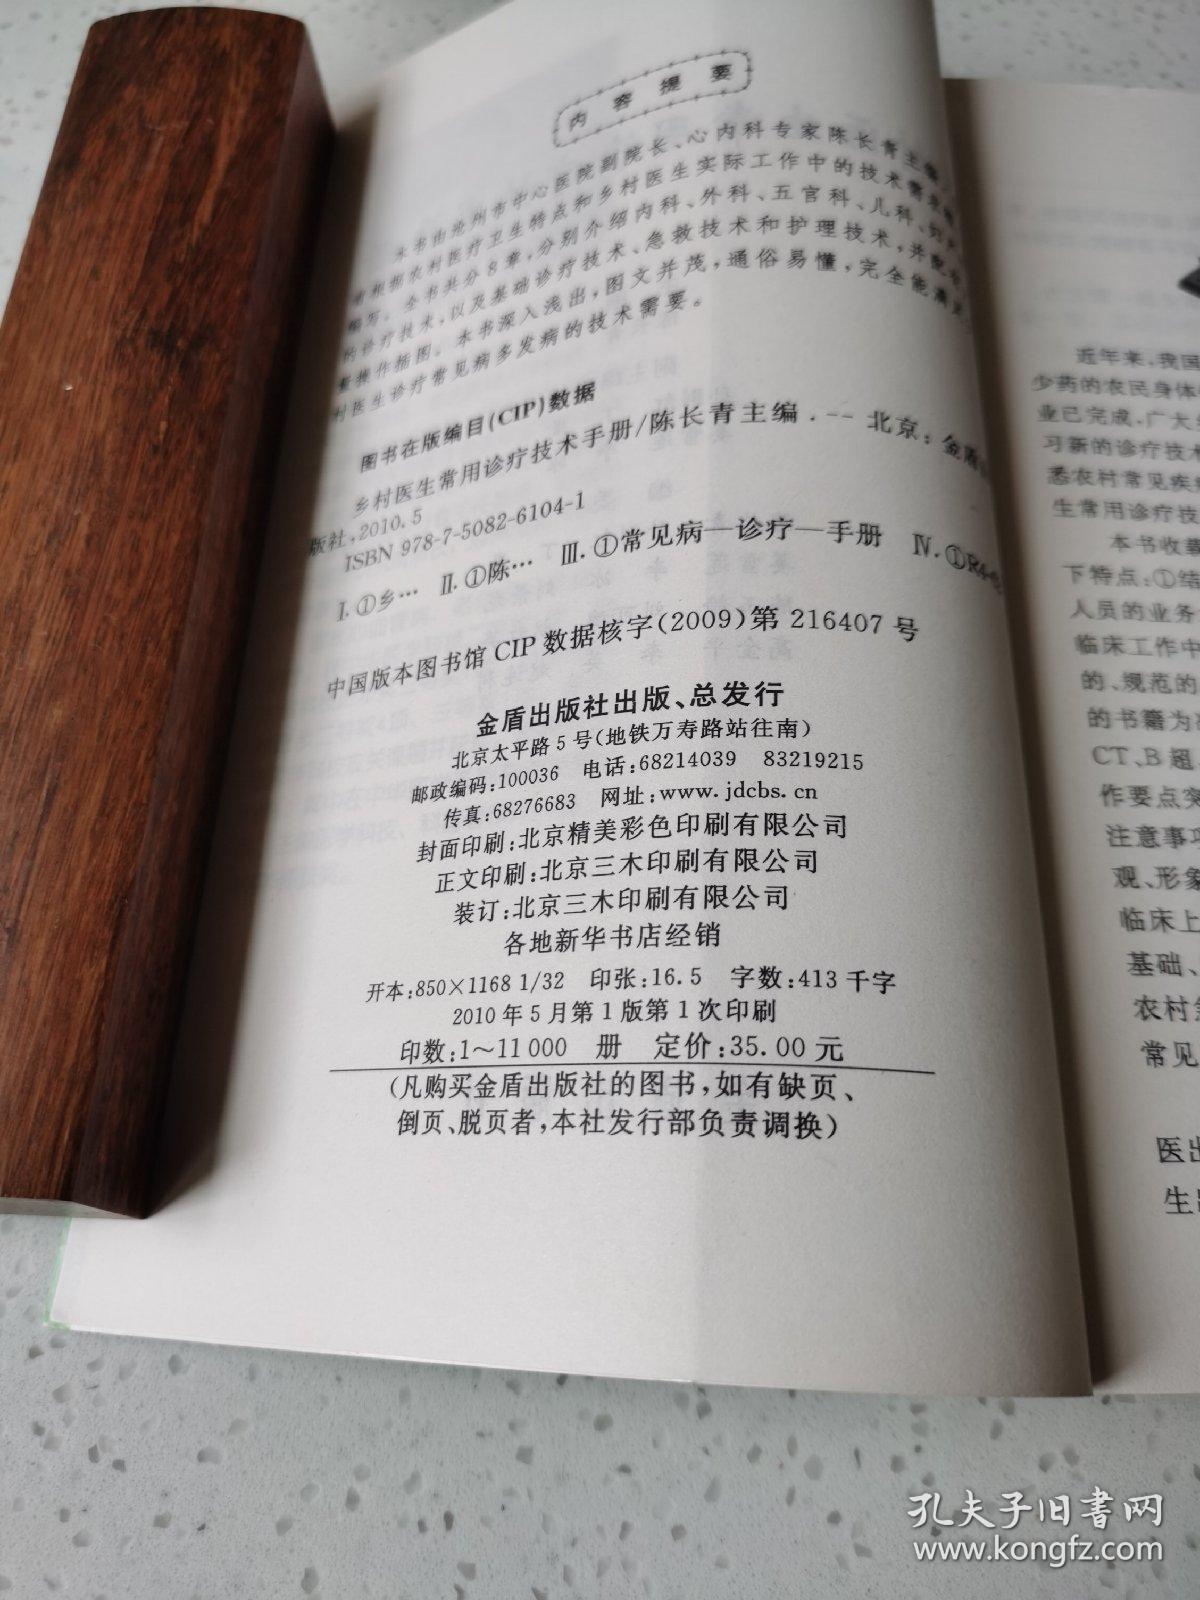 内容提要
本书由沧州市中心医院副院长、心内科专家陈长青主编,
根据农村医疗卫生特点和乡村医生实际工作中的技术需求
编写。全书共分8章,分别介绍内科、外科、五官科、儿科、妇
的诊疗技术,以及基础诊疗技术、急救技术和护理技术,并配
操作插图。本书深入浅出,图文并茂,通俗易懂,完全能满足
村医生诊疗常见病多发病的技术需要。
图书在版编目(CIP)数据
乡村医生常用诊疗技术手册/陈长青主编.--北京:金盾
版社,2010.5
ISBN 978-7-5082-6104-1
Ⅰ.①乡… Ⅱ.①陈… Ⅲ.①常见病—诊疗—手册 Ⅳ.①R4-
中国版本图书馆CIP数据核字(2009)第216407号
金盾出版社出版、总发行
北京太平路5号(地铁万寿路站往南)
邮政编码:100036 电话:68214039 83219215
传真:68276683 网址:www.jdcbs.cn
封面印刷:北京精美彩色印刷有限公司
正文印刷:北京三木印刷有限公司
装订:北京三木印刷有限公司
各地新华书店经销
开本:850×1168 1/32 印张:16.5 字数:413千字
2010年5月第1版第1次印刷
印数:1~11000 册 定价:35.00元
(凡购买金盾出版社的图书,如有缺页、
倒页、脱页者,本社发行部负责调换)
近年来,我国
少药的农民身体
业已完成,广大
习新的诊疗技术
悉农村常见疾
生常用诊疗技
本书收载
下特点:①结
人员的业务
临床工作中
的、规范的
的书籍为
CT、B超
作要点突
注意事项
观、形象
临床上
基础、
农村
常见
医出
生
孔夫子旧书网
www.kongfz.com